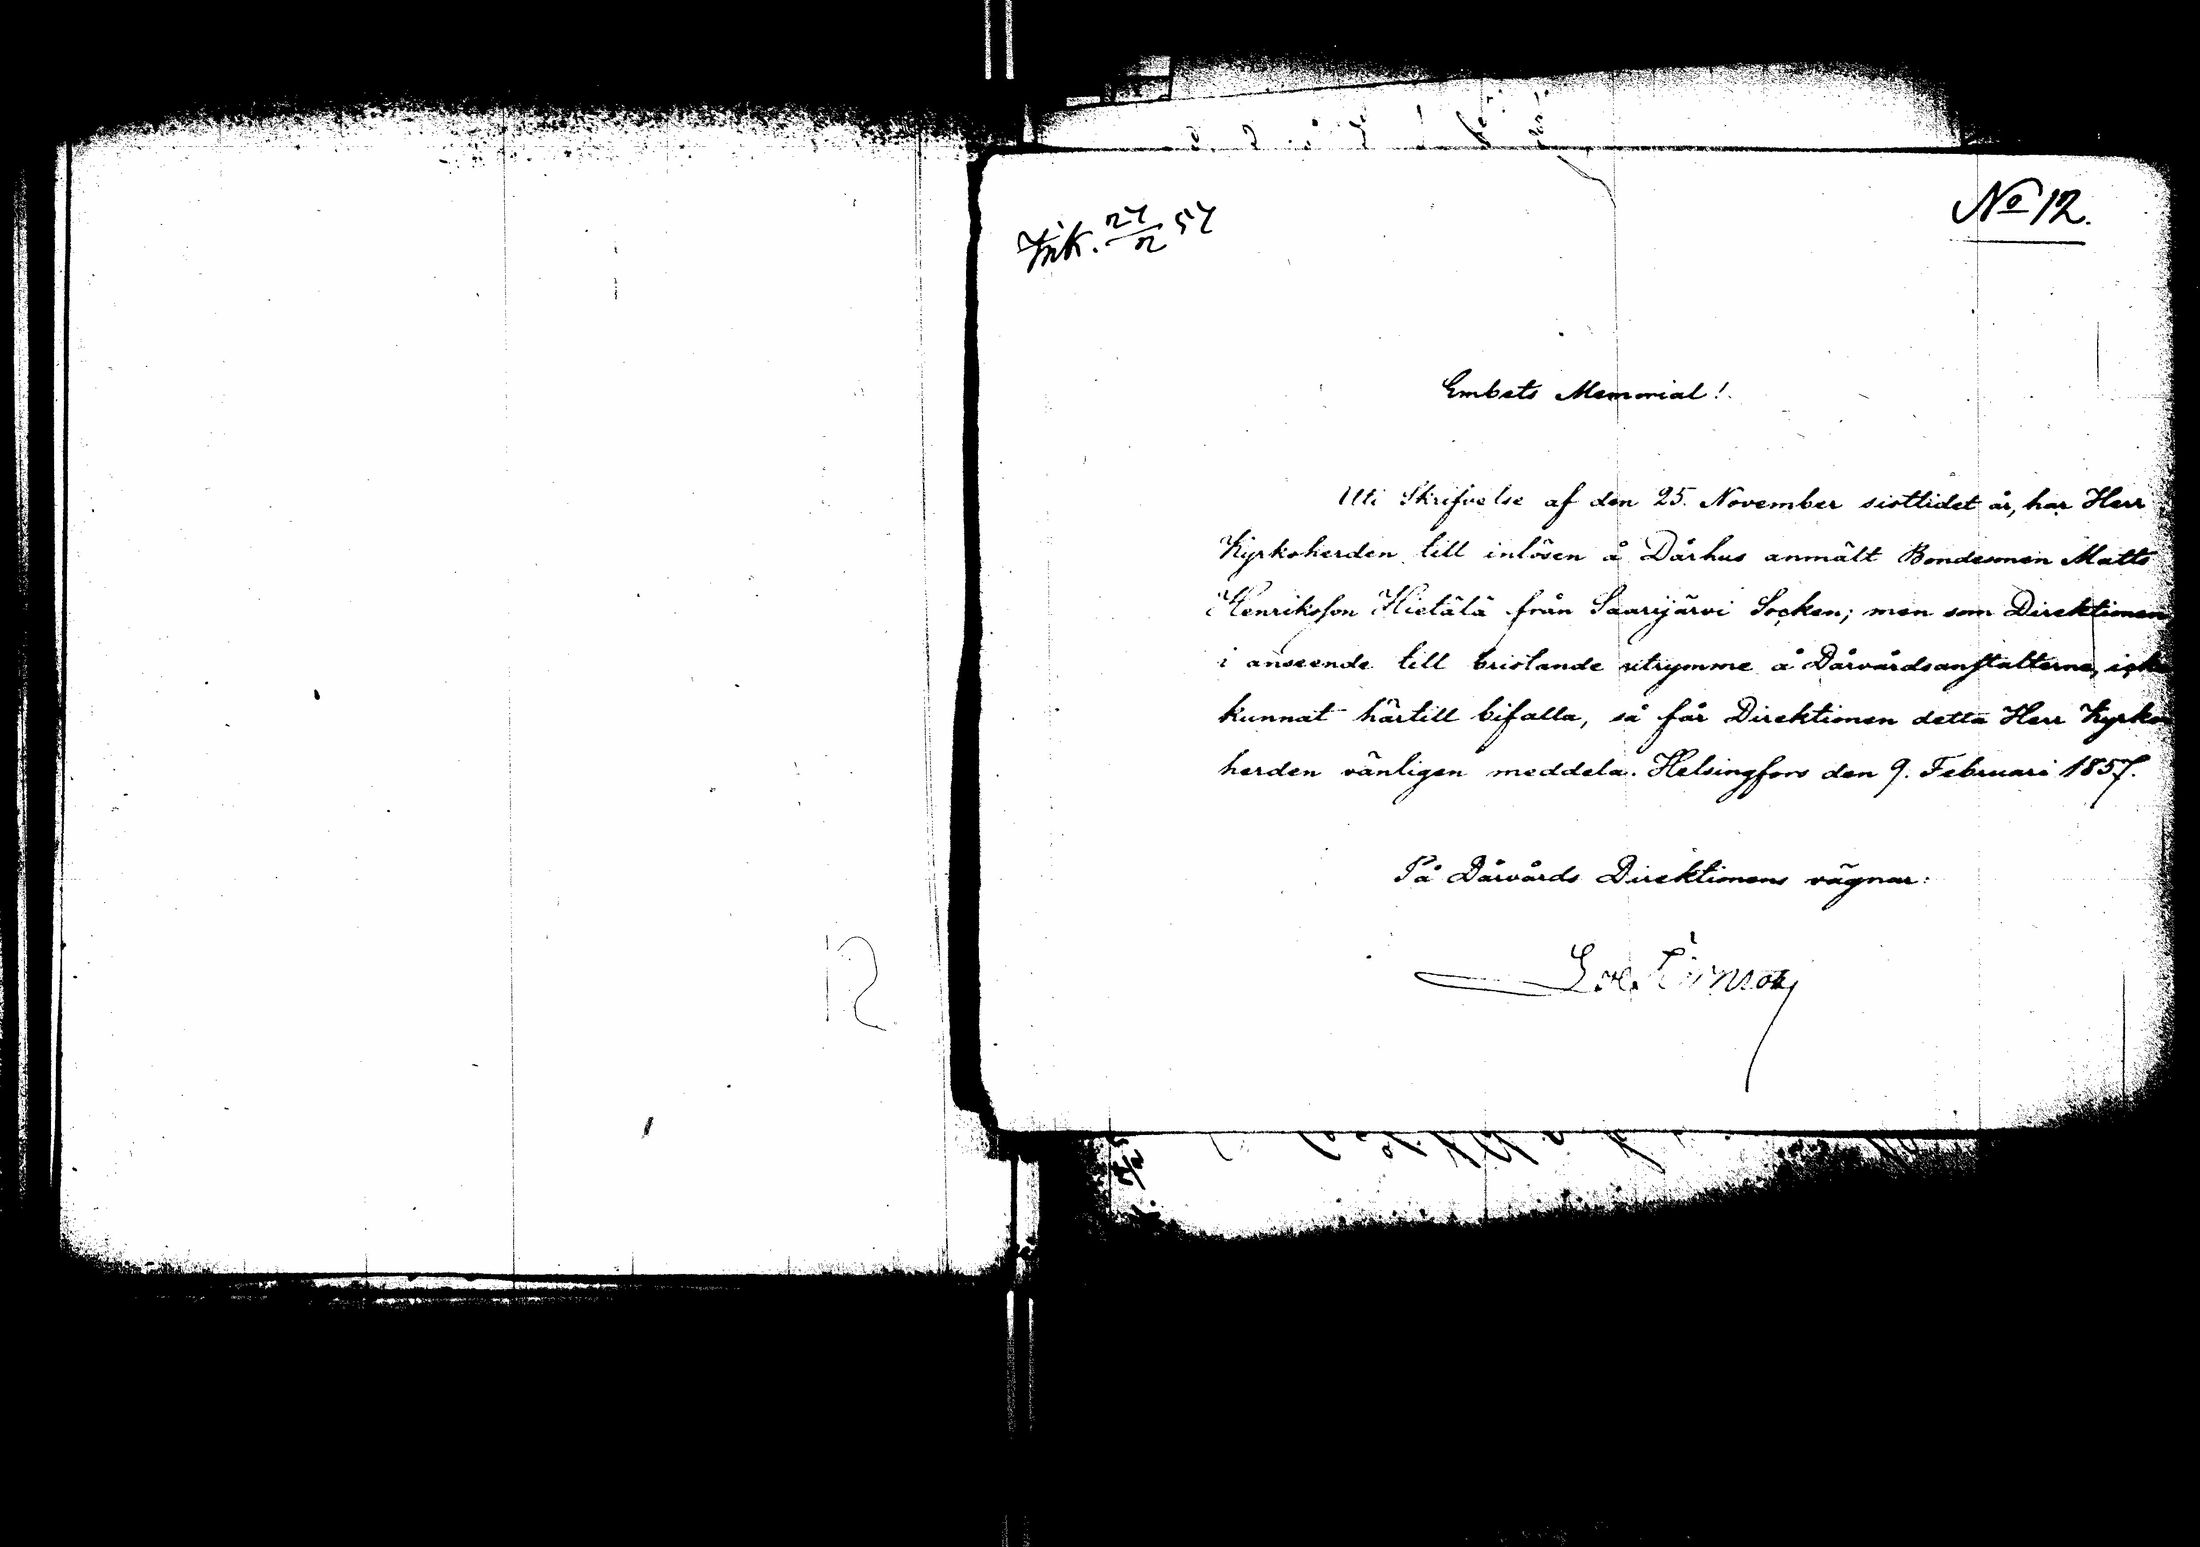 Ink. 27/2 57
No 12.
Embets Memorial!
Uti Skrifvelse af den 25. November sistlidet år, har Herr
Kyrkoherden till inlösen å Dårhus anmält Bondesonen Matts
Henriksson Hietälä från Saarijärvi Socken; men som Direktionen,
i anseende till bristande utrymme å Dårvårdsanstalterne, icke
kunnat härtill bifalla, så får Direktionen detta Herr Kyrko-
herden vänligen meddela. Helsingfors den 9. Februari 1857.
På Dårvårds Direktionens vägnar:
12